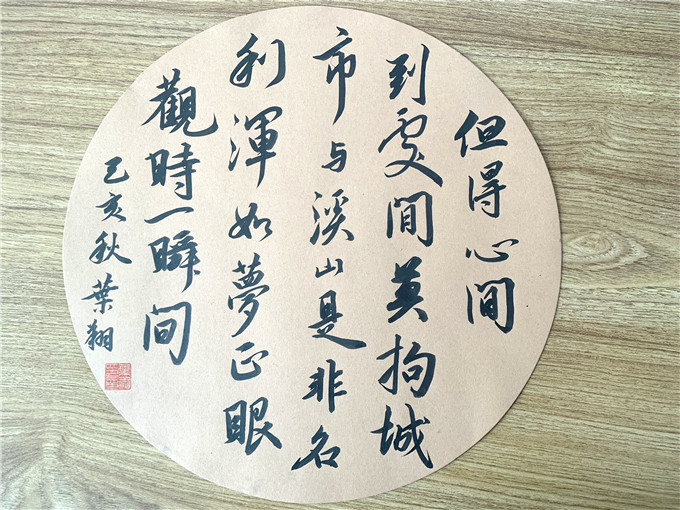 但得心間
到處間莫拘城
市与溪山是非名
利渾如夢正眼
觀時一瞬間
己亥秋 葉翔